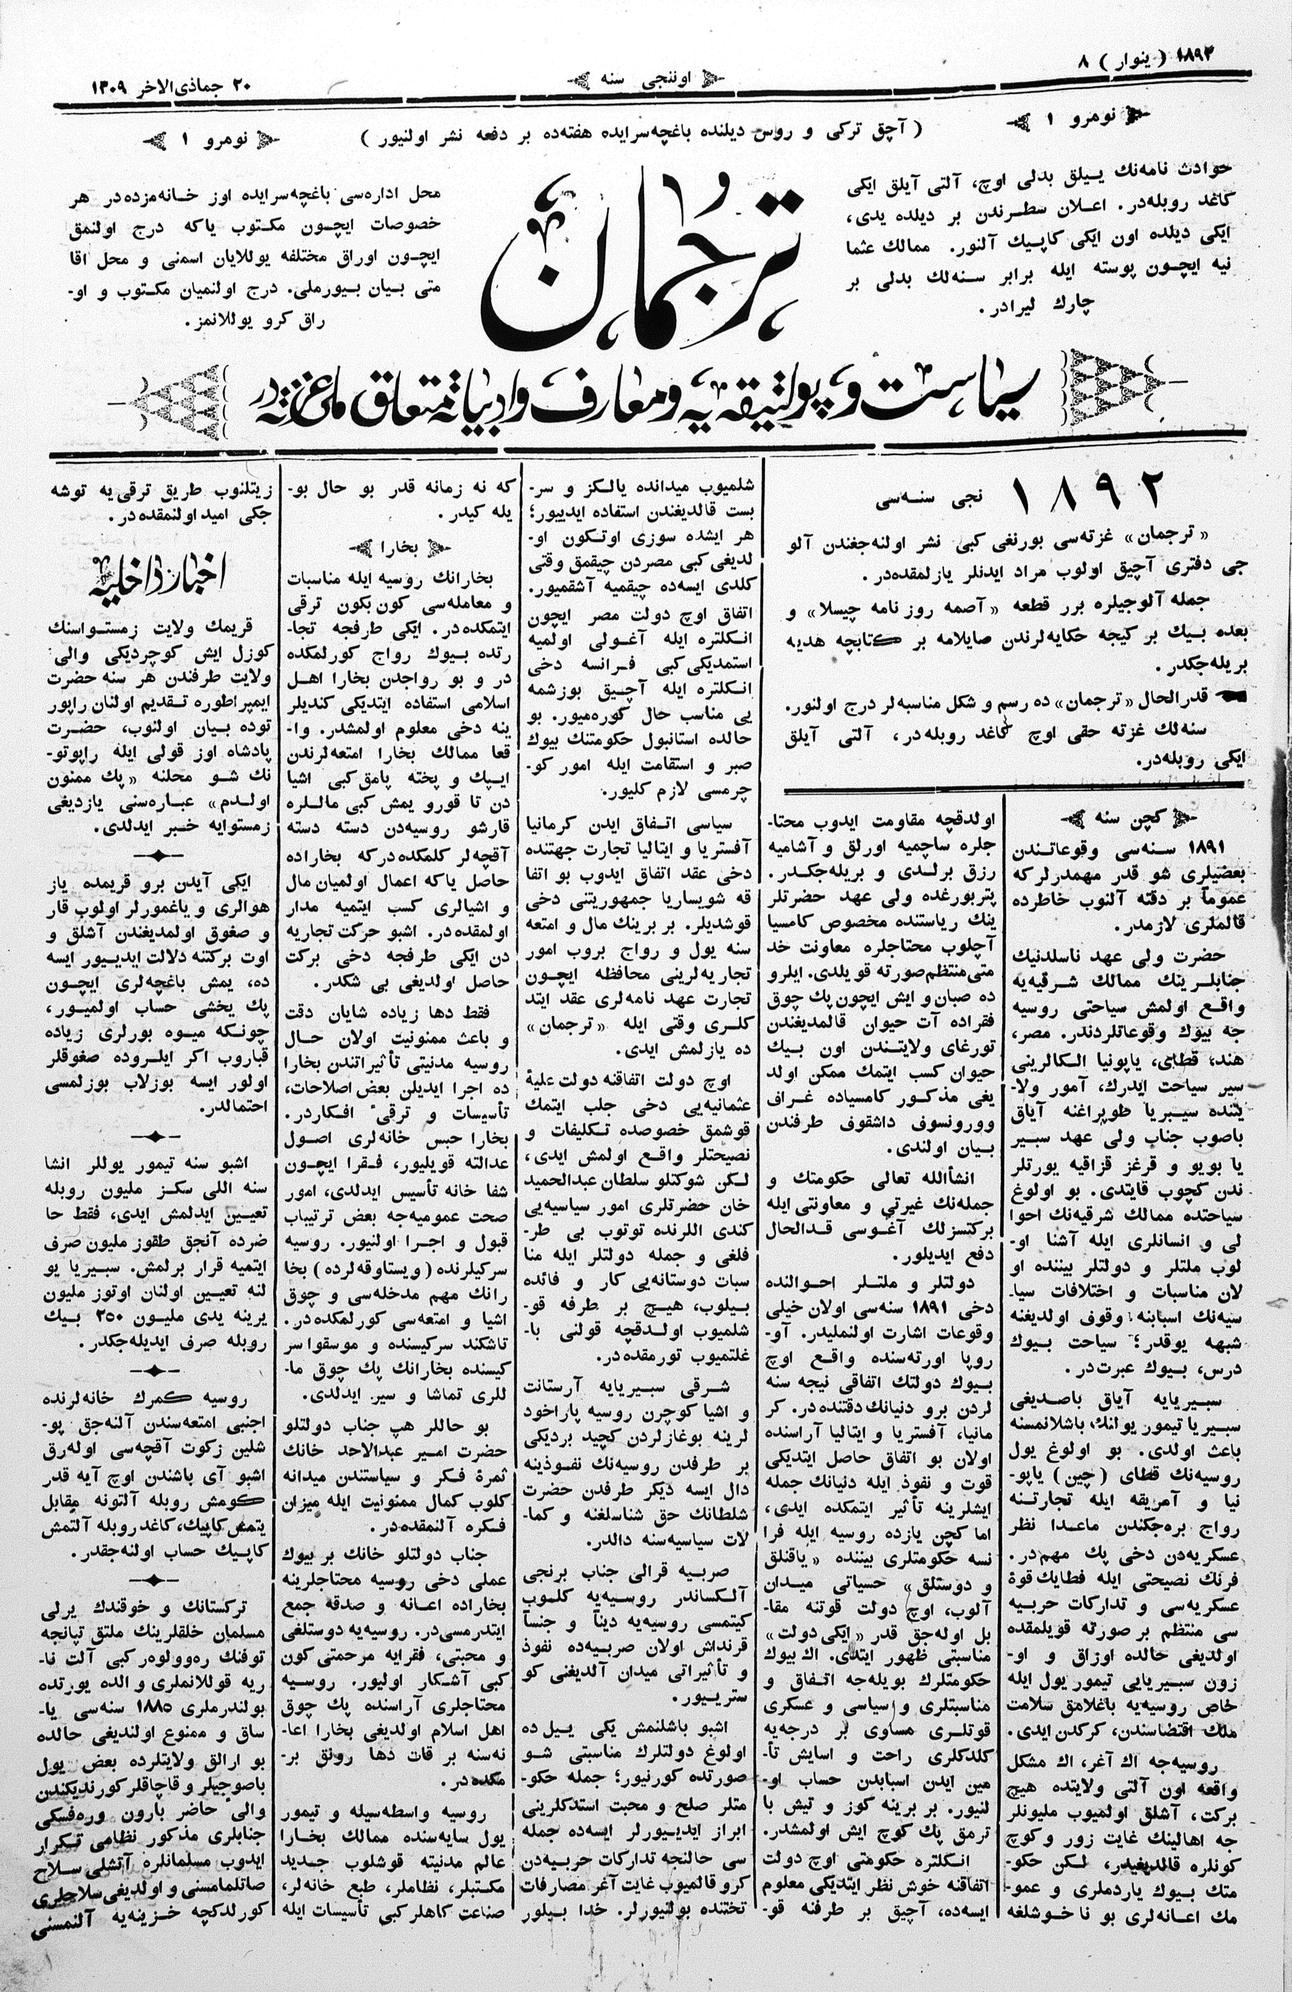 ١٨٩٢ ( ینوار ) ٨
اوننجی سنه
٢٠ جماذی‌الاخر ١٣٠٩
نومرو ١
( آچق ترکی و روس دیلنده باغچه‌سرایده هفته‌ده بر دفعه نشر اولنیور )
نومرو ١
حوادث نامه‌نك ییلق بدلی اوچ، آلتی آیلق ایکی
کاغد روبله‌در. اعلان سطرندن بر دیلده یدی،
ایکی دیلده اون ایکی کاپیك آلنور. ممالك عثما
نیه ایچون پوسته ایله برابر سنه‌لك بدلی بر
چارك لیرادر.
ترجمان
محل اداره‌سی باغچه‌سرایده اوز خانه‌مزده‌در هر
خصوصات ایچون مکتوب یاکه درج اولنمق
ایچون اوراق مختلفه یوللایان اسمنی و محل اقا
متی بیان بیورملی. درج اولنمیان مکتوب و او-
راق کرو یوللانمز.
سیاست و پولتیقه‌یه و معارف و ادبیاته متعلق ملی غزته‌در
١٨٩٢ نجی سنه‌سی
«ترجمان» غزته‌سی بورنغی کبی نشر اولنه‌جغندن آلو
جی دفتری آچیق اولوب مراد ایدنلر یازلمقده‌در.
جمله آلوجیلره برر قطعه «آصمه روزنامه چیسلا» و
بعده بیك بر کیجه حکایه‌لرندن صایلامه بر کتابچه هدیه
بریله‌جکدر.
قدرالحال «ترجمان» ده رسم و شکل مناسبه‌لر درج اولنور.
سنه‌لك غزته حقی اوچ کاغد روبله‌در، آلتی آیلق
ایکی روبله‌در.
کچن سنه
١٨٩١ سنه‌سی وقوعاتندن
بعضیلری شو قدر مهمدرلرکه
عموماً بر دقته آلنوب خاطرده
قالملری لازمدر.
حضرت ولی عهد ناسلدنیك
جنابلرینك ممالك شرقیه‌یه
واقع اولمش سیاحتی روسیه
جه بیوك وقوعاتلردندر. مصر،
هند، قطای، یاپونیا الکالرینی
سیر سیاحت ایدرك، آمور ولا-
یتنده سیبریا طوپراغنه آیاق
باصوب جناب ولی عهد سبیر
یا بویو و قرغز قزاقیه یورتلر
ندن کچوب قایتدی. بو اولوغ
سیاحتده ممالك شرقیه‌نك احوا
لی و انسانلری ایله آشنا او-
لوب ملتلر و دولتلر بیننده او
لان مناسبات و اختلافات سیا-
سیه‌نك اسبابنه وقوف اولدیغنه
شبهه یوقدر؛ سیاحت بیوك
درس، بیوك عبرت‌در.
سبیریایه آیاق باصدیغی
سبیریا تیمور یوانك، باشلانمسنه
باعث اولدی. بو اولوغ یول
روسیه‌نك قطای (چین) یاپو-
نیا و آمریقه ایله تجارتنه
رواج بره‌جکندن ماعدا نظر
عسکریه‌دن دخی پك مهم‌در.
فرنك نصیحتی ایله قطایك قوة
عسکریه‌سی و تدارکات حربیه
سی منتظم بر صورته قویلمقده
اولدیغی حالده اوزاق و او-
زون سبیریایی تیمور یول ایله
خاص روسیه‌یه باغلامق سلامت
ملك اقتضاسندن، کرکدن ایدی.
روسیه‌جه اك آغر، اك مشکل
واقعه اون آلتی ولایتده هیچ
برکت، آشلق اولمیوب ملیونلر
جه اهالینك غایت زور و کوچ
کونلره قالدیغیدر، لکن حکو-
متك بیوك یاردملری و عمو-
مك اعانه‌لری بو نا خوشلغه
اولدقچه مقاومت ایدوب محتا-
جلره ساچمیه اورلق و آشامیه
رزق برلدی و بریله‌جکدر.
پتربورغده ولی عهد حضرتلر
ینك ریاستنده مخصوص کامسیا
آچلوب محتاجلره معاونت خد
متی منتظم صورته قویلدی. ایلرو
ده صبان و ایش ایچون پك چوق
فقراده آت حیوان قالمدیغندن
تورغای ولایتندن اون بیك
حیوان کسب ایتمك ممکن اولد
یغی مذکور کامسیاده غراف
وورونسوف داشقوف طرفندن
بیان اولندی.
انشأالله تعالی حکومتك و
جمله‌نك غیرتی و معاونتی ایله
برکتسزلك آغوسی قدالحال
دفع ایدیلور.
دولتلر و ملتلر احوالنده
دخی ١٨٩١ سنه‌سی اولان خیلی
وقوعات اشارت اولنملیدر. آو-
روپا اورته‌سنده واقع اوچ
بیوك دولتك اتفاقی نیجه سنه
لردن برو دنیانك دقتنده‌در. کر
مانیا، آفستریا و ایتالیا آراسنده
اولان بو اتفاق حاصل ایتدیکی
قوت و نفوذ ایله دنیانك جمله
ایشلرینه تأثیر ایتمکده ایدی،
اما کچن یازده روسیه ایله فرا
نسه حکومتلری بیننده «یاقنلق
و دوستلق» حسیاتی میدان
آلوب، اوچ دولت قوتنه مقا-
بل اوله‌جق قدر «ایکی دولت»
مناسبتی ظهور ایتدی. اك بیوك
حکومتلرك بویله‌جه اتفاق و
مناسبتلری و سیاسی و عسکری
قوتلری مساوی بر درجه‌یه
کلدکلری راحت و اسایش تأ-
مین ایدن اسبابدن حساب او-
لنیور. بر برینه کوز و تیش با
ترمق پك کوچ ایش اولمشدر.
انکلتره حکومتی اوچ دولت
اتفاقنه خوش نظر ایتدیکی معلوم
ایسه‌ده، آچیق بر طرفنه قو-
شلمیوب میدانده یالکز و سر-
بست قالدیغندن استفاده ایدییور؛
هر ایشده سوزی اوتکون او-
لدیغی کبی مصردن چیقمق وقتی
کلدی ایسه‌ده چیقمیه آشقمیور.
اتفاق اوچ دولت مصر ایچون
انکلتره ایله آغولی اولمیه
استمدیکی کبی فرانسه دخی
انکلتره ایله آچیق بوزشمه
یی مناسب حال کوره‌میور. بو
حالده استانبول حکومتنك بیوك
صبر و استقامت ایله امور کو-
چرمسی لازم کلیور.
سیاسی اتفاق ایدن کرمانیا
آفستریا و ایتالیا تجارت جهتنده
دخی عقد اتفاق ایدوب بو اتفا
قه شویساریا جمهوریتنی دخی
قوشدیلر. بر برینك مال و امتعه
سنه یول و رواج بروب امور
تجاریه‌لرینی محافظه ایچون
تجارت عهد نامه‌لری عقد ایتد
کلری وقتی ایله «ترجمان»
ده یازلمش ایدی.
اوچ دولت اتفاقنه دولت علیهٔ
عثمانیه‌یی دخی جلب ایتمك
قوشمق خصوصده تکلیفات و
نصیحتلر واقع اولمش ایدی،
لکن شوکتلو سلطان عبدالحمید
خان حضرتلری امور سیاسیه‌یی
کندی اللرنده توتوب بی طر-
فلغی و جمله دولتلر ایله منا
سبات دوستانه‌یی کار و فائده
بیلوب، هیچ بر طرفه قو-
شلمیوب اولدقچه قولنی با-
غلتمیوب تورمقده‌در.
شرقی سبیریایه آرستانت
و اشیا کوچرن روسیه پاراخود
لرینه بوغازلردن کچید بردیکی
بر طرفدن روسیه‌نك نفوذینه
دال ایسه دیکر طرفدن حضرت
شلطانك حق شناسلغنه و کما-
لات سیاسیه‌سنه دالدر.
صربیه قرالی جناب برنجی
آلکساندر روسیه‌یه کلوب
کیتمسی روسیه‌یه دیناً و جنساً
قرنداش اولان صربیه‌ده نفوذ
و تأثیراتی میدان آلدیغنی کو
ستریور.
اشبو باشلنمش یکی ییل ده
اولوغ دولتلرك مناسبتی شو
صورتده کورنیور؛ جمله حکو-
متلر صلح و محبت استدکلرینی
ابراز ایدییورلر ایسه‌ده جمله
سی حالنجه تدارکات حربیه‌دن
کرو قالمیوب غایت آغر مصارفات
تختنده بولنیورلر. خدا بیلور
که نه زمانه قدر بو حال بو-
یله کیدر.
بخارا
بخارانك روسیه ایله مناسبات
و معامله‌سی کون بکون ترقی
ایتمکده‌در. ایکی طرفجه تجا-
رتده بیوك رواج کورلمکده
در و بو رواجدن بخارا اهل
اسلامی استفاده ایتدیکی کندیلر
ینه دخی معلوم اولمشدر. وا-
قعا ممالك بخارا امتعه‌لرندن
ایپك و پخته پامق کبی اشیا
دن تا قورو یمش کبی ماللره
قارشو روسیه‌دن دسته دسته
آقچه‌لر کلمکده‌در که بخاراده
حاصل یاکه اعمال اولمیان مال
و اشیالری کسب ایتمیه مدار
اولمقده‌در. اشبو حرکت تجاریه
دن ایکی طرفجه دخی برکت
حاصل اولدیغی بی شکدر.
فقط دها زیاده شایان دقت
و باعث ممنونیت اولان حال
روسیه مدنیتی تأثیراتندن بخارا
ده اجرا ایدیلن بعض اصلاحات،
تأسیسات و ترقیٔ افکاردر.
بخارا حبس خانه‌لری اصول
عدالته قویلیور، فقرا ایچون
شفا خانه تأسیس ایدلدی، امور
صحت عمومیه‌جه بعض ترتیبات
قبول و اجرا اولنیور. روسیه
سرکیلرنده (ویستاوقه‌لرده) بخا
رانك مهم مدخله‌سی و چوق
اشیا و امتعه‌سی کورلمکده‌در.
تاشکند سرکیسنده و موسقوا سر
کیسنده بخارانك پك چوق ما-
للری تماشا و سیر ایدلدی.
بو حاللر هپ جناب دولتلو
حضرت امیر عبدالاحد خانك
ثمرهٔ فکر و سیاستندن میدانه
کلوب کمال ممنونیت ایله میزان
فکره آلنمقده‌در.
جناب دولتلو خانك بر بیوك
عملی دخی روسیه محتاجلرینه
بخاراده اعانه و صدقه جمع
ایتدرمسی‌در. روسیه‌یه دوستلغی
و محبتی، فقرایه مرحمتی کون
کبی آشکار اولیور. روسیه
محتاجلری آراسنده پك چوق
اهل اسلام اولدیغی بخارا اعا-
نه‌سنه بر قات دها رونق بر-
مکده‌در.
روسیه واسطه‌سیله و تیمور
یول سایه‌سنده ممالك بخارا
عالم مدنیته قوشلوب جدید
مکتبلر، نظاملر، طبع خانه‌لر،
صناعت کاهلر کبی تأسیسات ایله
زیتلنوب طریق ترقی‌یه توشه
جکی امید اولنمقده‌در.
اخبار داخلیه
قریمك ولایت زمستواسنك
کوزل ایش کوچردیکی والی
ولایت طرفندن هر سنه حضرت
ایمپراطوره تقدیم اولنان راپور
توده بیان اولنوب، حضرت
پادشاه اوز قولی ایله راپوتو-
نك شو محلنه «پك ممنون
اولدم» عباره‌سنی یازدیغی
زمستوایه خبر ایدلدی.
ایکی آیدن برو قریمده یاز
هوالری و یاغمورلر اولوب قار
و صغوق اولمدیغندن آشلق و
اوت برکتنه دلالت ایدییور ایسه
ده، یمش باغچه‌لری ایچون
پك یخشی حساب اولمیور،
چونکه میوه بورلری زیاده
قباروب اکر ایلروده صغوقلر
اولور ایسه بوزلاب بوزلمسی
احتمالدر.
اشبو سنه تیمور یوللر انشا
سنه اللی سکز ملیون روبله
تعیین ایدلمش ایدی، فقط حا
ضرده آنجق طقوز ملیون صرف
ایتمیه قرار برلمش. سبیریا یو
لنه تعیین اولنان اوتوز ملیون
یرینه یدی ملیون ٢٥٠ بیك
روبله صرف ایدیله‌جکدر.
روسیه کمرك خانه‌لرنده
اجنبی امتعه‌سندن آلنه‌جق پو-
شلین زکوت آقچه‌سی اوله‌رق
اشبو آی باشندن اوچ آیه قدر
کومش روبله آلتونه مقابل
یتمش کاپیك، کاغد روبله آلتمش
کاپیك حساب اولنه‌جقدر.
ترکستانك و خوقندك یرلی
مسلمان خلقلرینك ملتق تپانچه
توفنك ره‌وولوه‌ر کبی آلت نا-
ریه قوللانملری و الده یورتده
بولندرملری ١٨٨٥ سنه‌سی یا-
ساق و ممنوع اولندیغی حالده
بو ارالق ولایتلرده بعض یول
باصوجیلر و قاچاقلر کورندیکندن
والی حاضر بارون وره‌فسکی
جنابلری مذکور نظامی تکرار
ایدوب مسلمانلره آتشلی سلاح
صاتلمامسنی و اولدیغی سلاحلری
کورلدکچه خزینه‌یه آلنمسنی